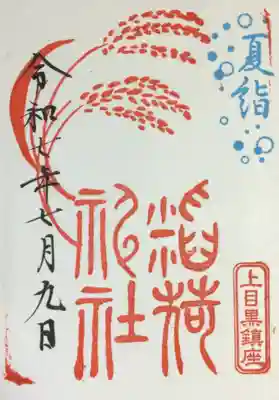 夏詣
上目黒鎮座
稲荷
神社
令和七年七月九日